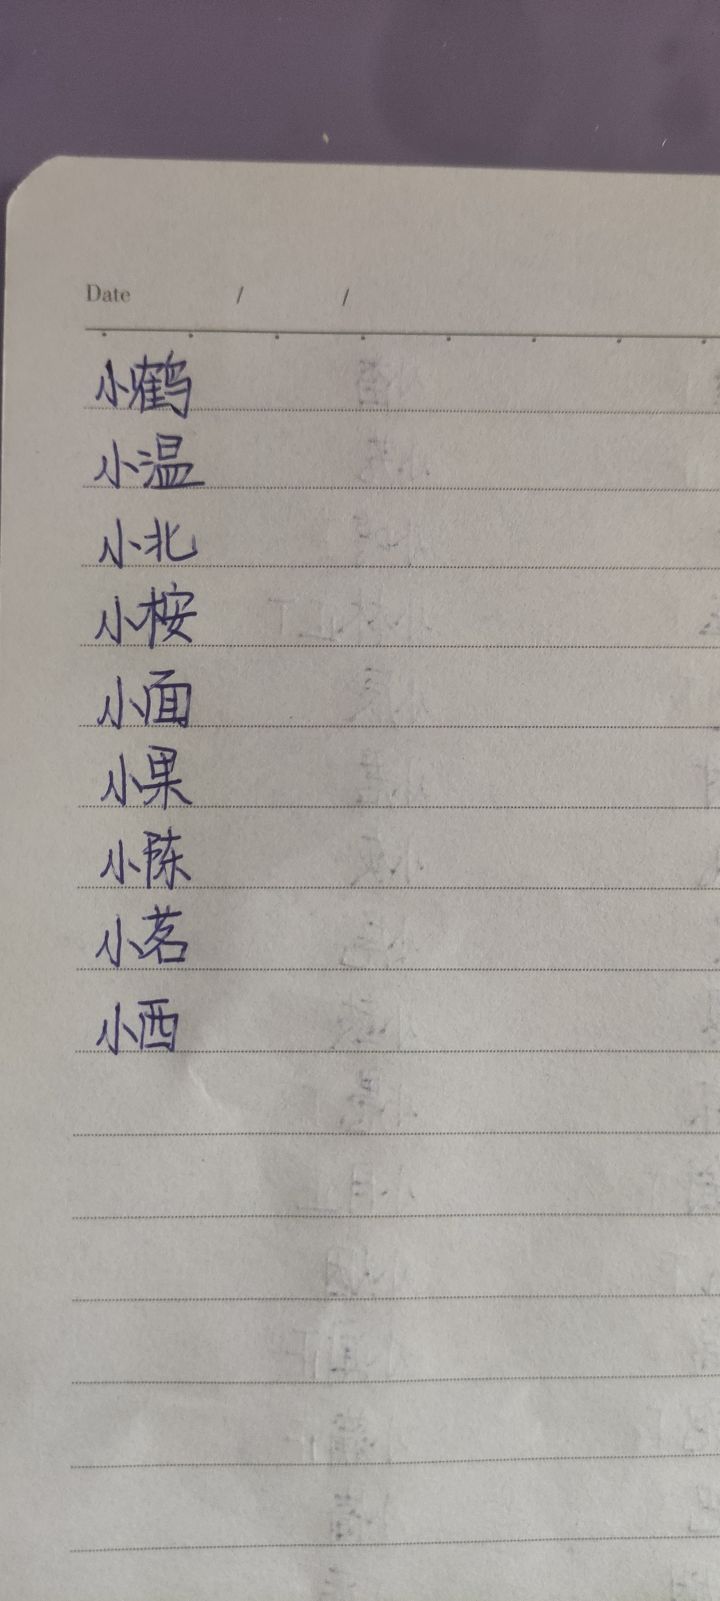 Date / /
小鹤
小温
小北
小桉
小面
小果
小陈
小茗
小西